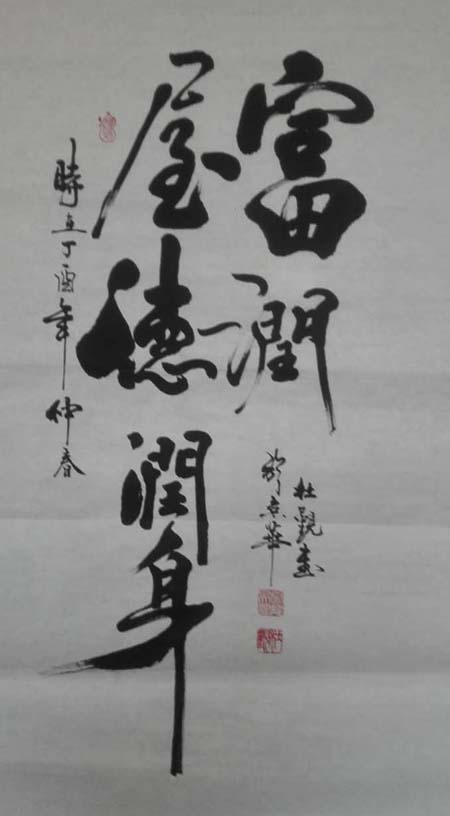 富潤
屋德潤身
杜觀書
於京華
時在丁酉年仲春